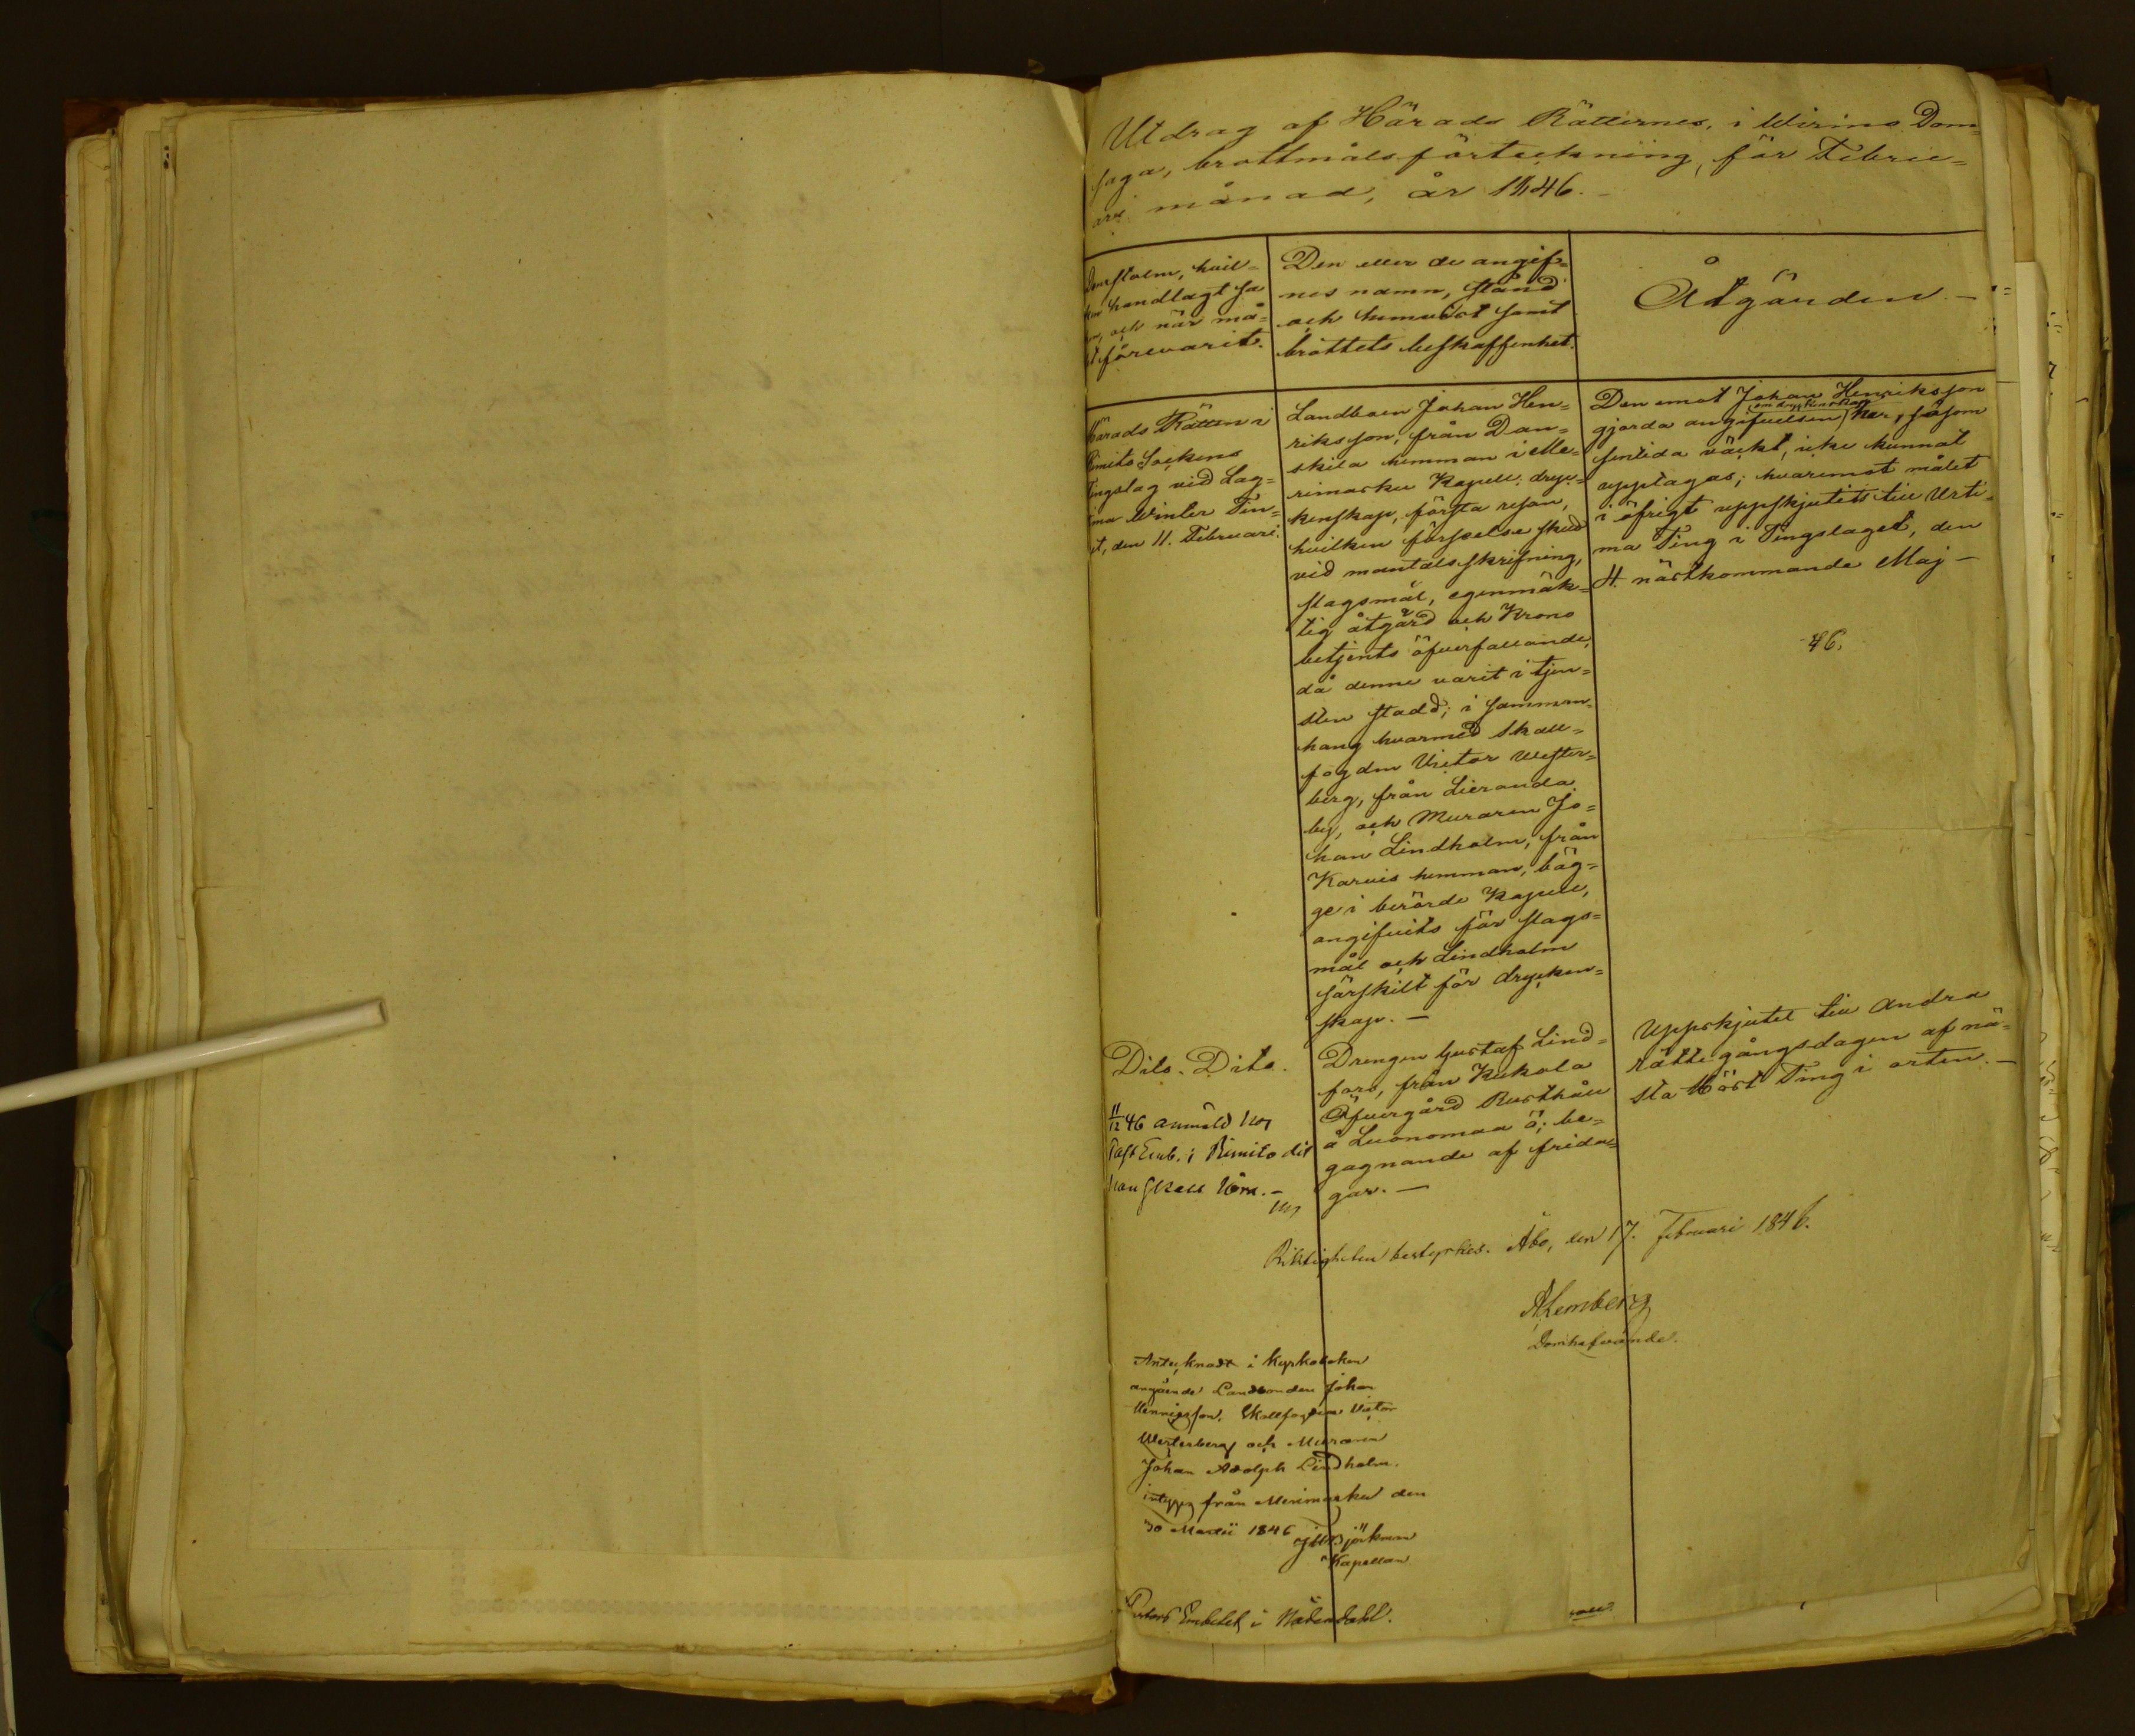 Utdrag af Härads Rätternes, i Wirmo Dom=
saga, brottmålsförteckning, för Febru=
arii månad, år 1846.
Domstolen, hvil=
ken handlagt sa
ken, och när må=
let förevarit.
Den eller de angif=
nes namn, stånd
och hemvist samt
brottets beskaffenhet.
Åtgärden —
Härads Rätten i
Rimito Sockens
Tingslag vid Lag=
tima Winter Tin=
get, den 11. Februari.
Landboen Johan Hen=
riksson, från Dan=
skila hemman i Me=
rimasku Kapell: dryc=
kenskap, första resan,
hvilken förseelse skedt
vid mantalsskrifning,
slagsmål, egenmäk=
tig åtgärd och Krono
betjents öfverfallande,
då denne varit i tjen=
sten stadd; i samman=
hang hvarmed Skall=
fogden Victor Wester=
berg, från Lieranda
by, och Muraren Jo=
han Lindholm, från
Karvis hemman, båg=
ge i berörde Kapell,
angifvits för slags=
mål och Lindholm
särskilt för drycken=
skap. —
Den emot Johan Henriksson
om dryckenskap
gjorda angifvelsen har, såsom
sentida väckt, icke kunnat
upptagas; hvaremot målet
i öfrigt uppskjutits till Urti=
ma Ting i Tingslaget, den
4. nästkommande Maj —
46.
Dito. Dito.
Drengen Gustaf Lind=
fors, från Kukola
Öfvergård Rusthåll
å Luonomaa ö; be=
gagnande af frida=
gar. —
Uppskjutet till andra
rättegångsdagen af nä=
sta Höst Ting i orten. —
11/12 46 anmäld hos
Past Emb. i Rimito dit
han skall höra. —
Riktigheten bestyrkes. Åbo, den 17. Februari 1846.
A Lemberg
Domhafvande.
Antecknadt i Kyrkoboken
angående Landbonden Johan
Henricsson, Skallfogden Victor
Westerberg och Muraren
Johan Adolph Lindholm.
intygar från Merimasku den
30 Martii 1846
Björkman
Kapellan
Pastors Embetet i Nådendahl.